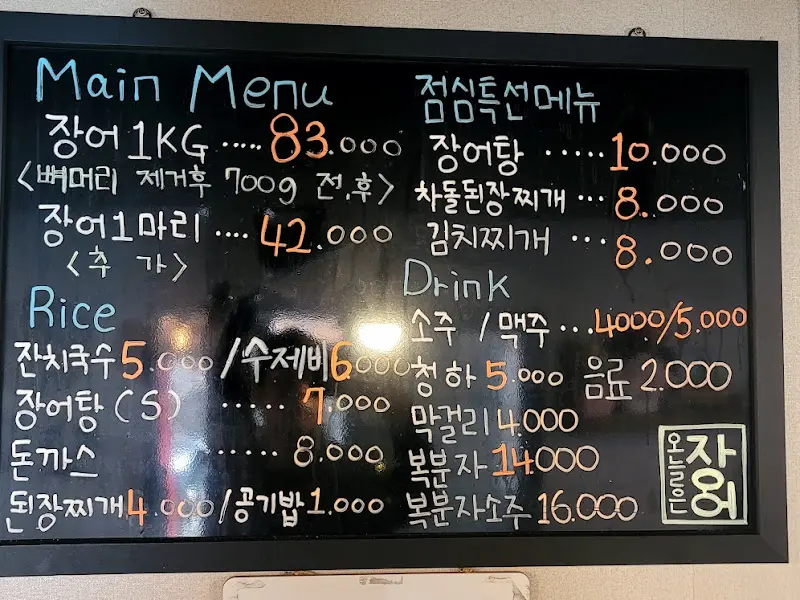 Main Menu
장어 1KG ..... 83.000
<뼈머리 제거후 700g 전.후>
장어 1마리 .... 42.000
<추 가>
Rice
잔치국수 5.000 / 수제비 6000
장어탕 (S) ...... 7.000
돈까스 ..... 8.000
된장찌개 4.000 / 공기밥 1.000
점심특선메뉴
장어탕 ..... 10.000
차돌된장찌개 ... 8.000
김치찌개 ... 8.000
Drink
소주 / 맥주 ... 4000/5.000
청하 5.000 음료 2.000
막걸리 4.000
복분자 14000
복분자소주 16.000
오늘은
장어